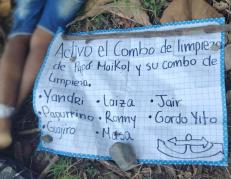 Activo el Combo de limpieza
de Papá Maikol y su combo de
limpieza.
• Yandri • Loiza • Jair
• Papurrino • Ronny • Gordo Yito
• Guajro • Mosa